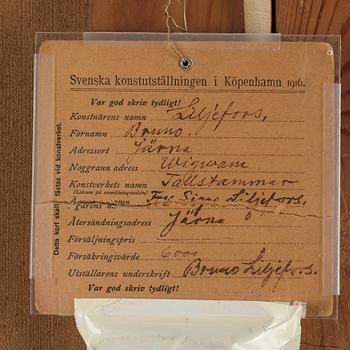 Svenska konstutställningen i Köpenhamn 1916.
Var god skriv tydligt!
Konstnärens namn Liljefors,
Förnamn Bruno.
Adressort Järna
Noggrann adress Wigwam
Konstverkets namn Tallstammar
(Liksom på anmälningssedeln)
Ägarens namn Fru Signe Liljefors,
Återsändningsadress Järna
Försäljningspris
Försäkringsvärde 6000
Utställarens underskrift Bruno Liljefors.
Var god skriv tydligt!
Detta kort skall fästas vid konstverket.